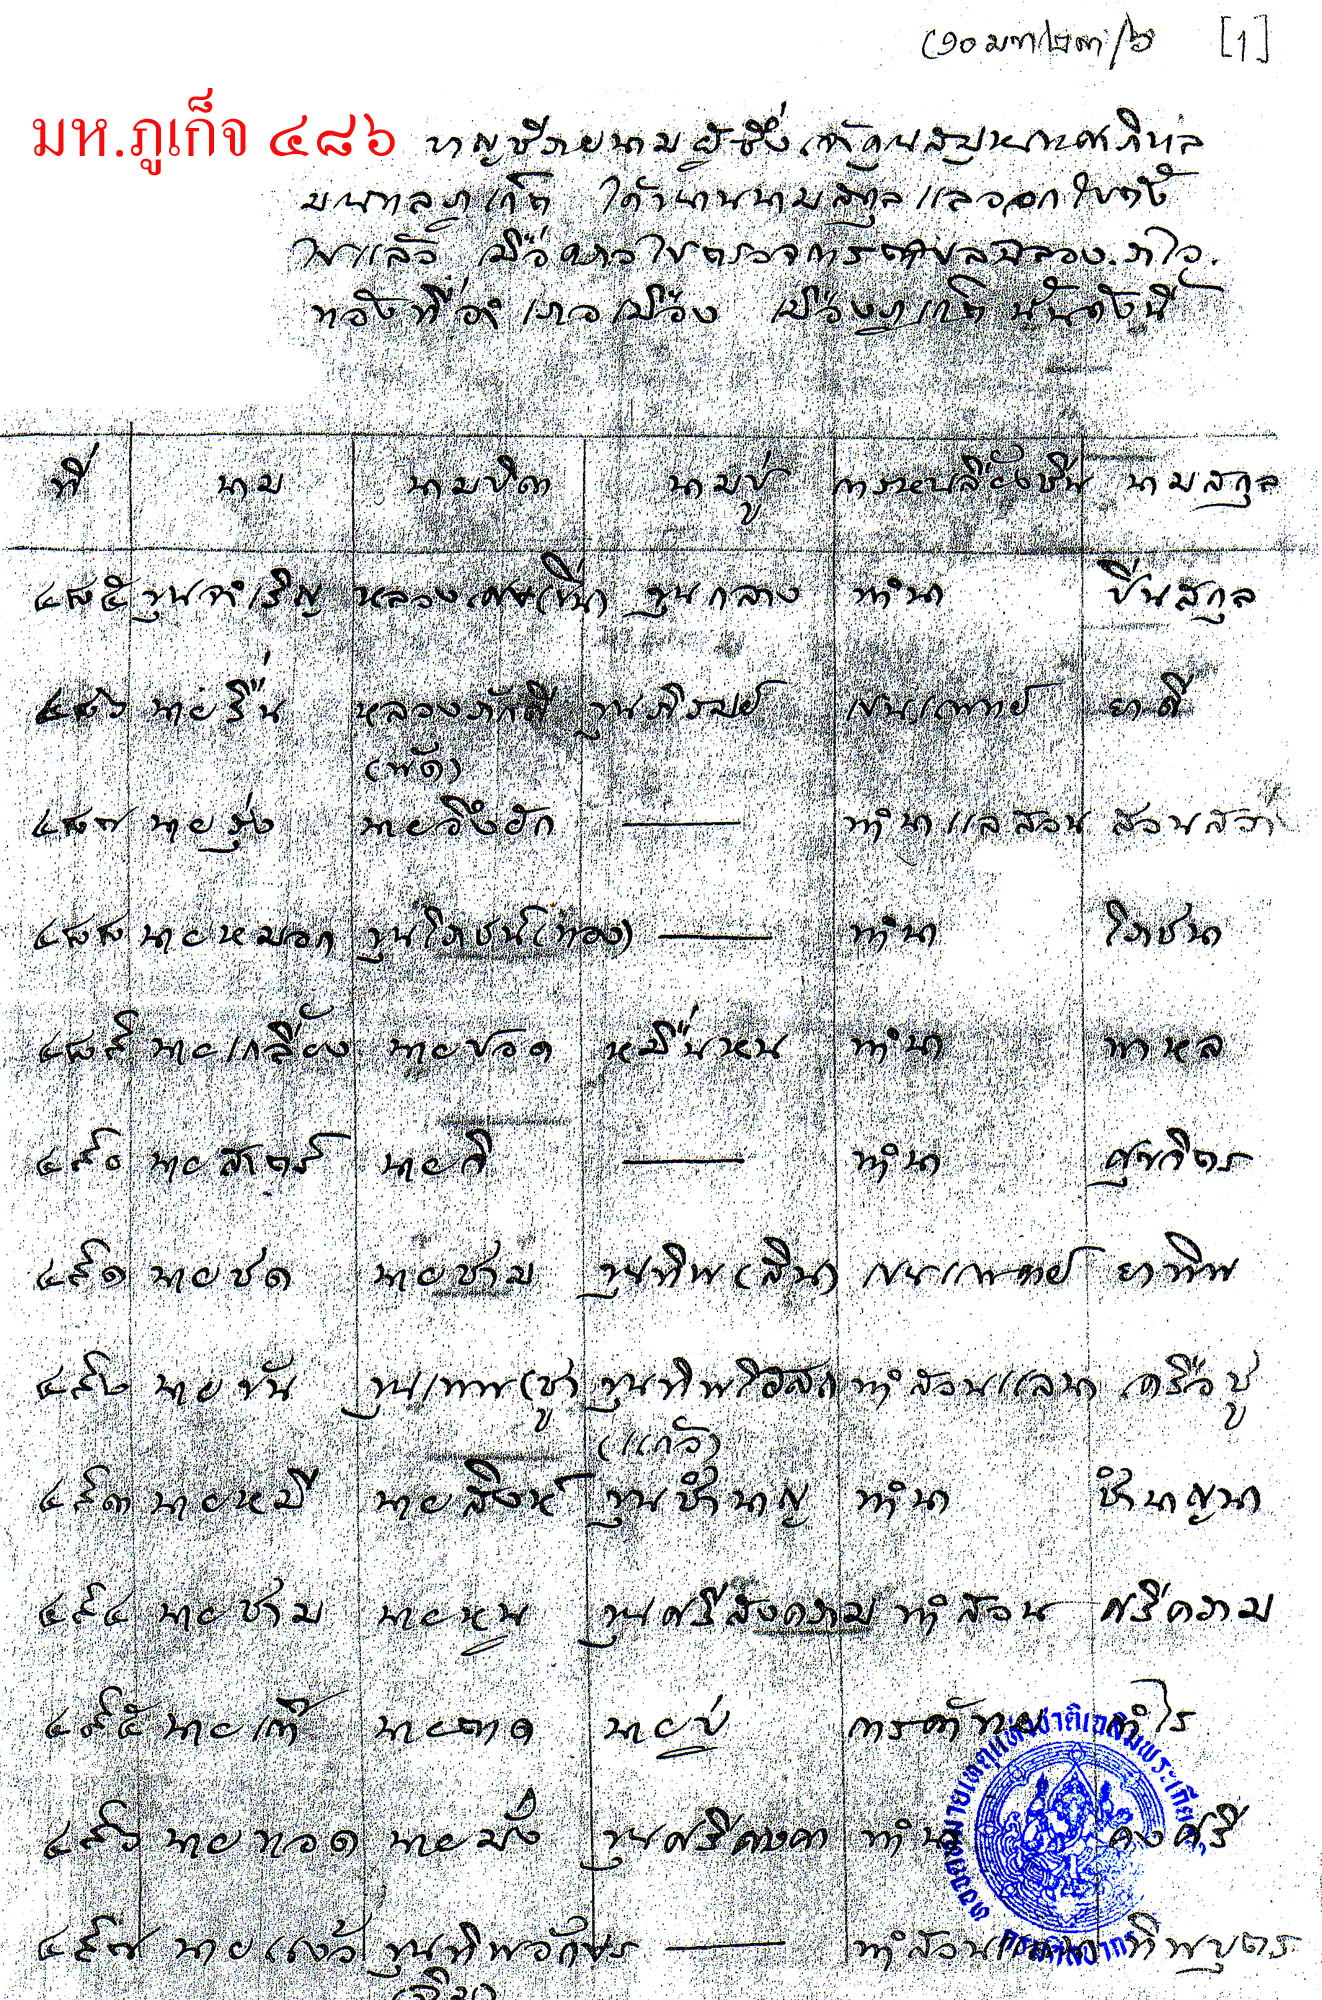 [1]
มห.ภูเก็จ ๔๘๖
บาญชีรายนามผู้ซึ่ง
มณฑลภูเก็ต ได้ นามสกุลแลออก
ไปแล้ว เมื่อคราวไปตรวจการ
ท้องที่อำเภอเมือง เมืองภูเก็ต นั้นดังนี้
ที่ นาม นามบิดา นามปู่ การหาเลี้ยงชีพ นามสกุล
๔๘๕ ขุนจำเริญ ขุนกลาง ทำนา ปิ่นสกุล
๔๘๖ นายรื่น หลวงภักดี ขุนภิรมย์ แพทย์ ยาดี
(พัด)
๔๘๗ นายรุ่ง นาย ทำนาแลสวน สวนสว่าง
๔๘๘ นายหมอก ขุนโภชน์ (ทอง) ทำนา โภชนา
๔๘๙ นายเกลี้ยง นายปอด หมื่นหน ทำนา พาหล
๔๙๐ นายสาตร์ นายกี ทำนา
๔๙๑ นายชด นายชาม ขุนทิพ (สิน) แพทย์ ยาทิพ
๔๙๒ นายขัน ขุนเทพ (ชู) ขุนทิพโอสถ ทำสวนแลนา เครือชู
(แก้ว)
๔๙๓ นายหมี นายสิงห์ ขุนชำนาญ ทำนา ชำนาญนา
๔๙๔ นายชาม นายหนู ขุนศรีสงคราม ทำสวน ศรีคราม
๔๙๕ นาย นายตาด นายปู่ การค้าขาย กำไร
๔๙๖ นายทอด นายมั่ง ขุนศรีคงคา ทำนา คงศรี
๔๙๗ นายแจ้ว ขุนทิพอักษร ทำสวนแลนา ทิพบุตร
หอจดหมายเหตุแห่งชาติเฉลิมพระเกียรติ
กรมศิลปากร